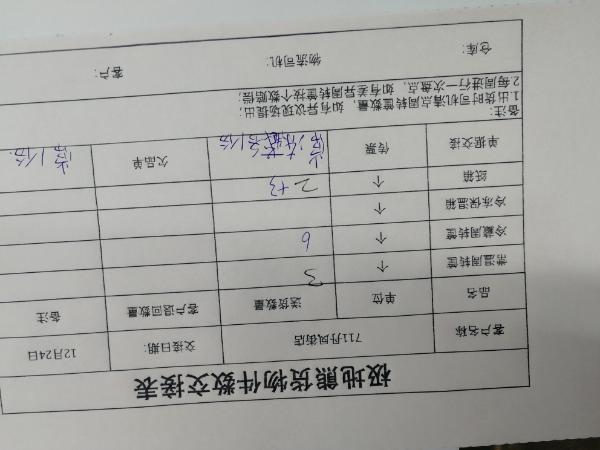 极地熊货物件数交接表
客户名称 711丹凤街店 交接日期: 12月24日
品名 单位 送货数量 客户退回数量 备注
常温周转筐 个 3
冷藏周转筐 个 6
冷冻保温箱 个
纸箱 个 2+3
单据交接 传票 欠品单
备注:
1.出货时司机清点周转筐数量,如有异议现场提出;
2.每周进行一次盘点,如有差异周转筐按个数赔偿;
仓库: 物流司机: 客户: